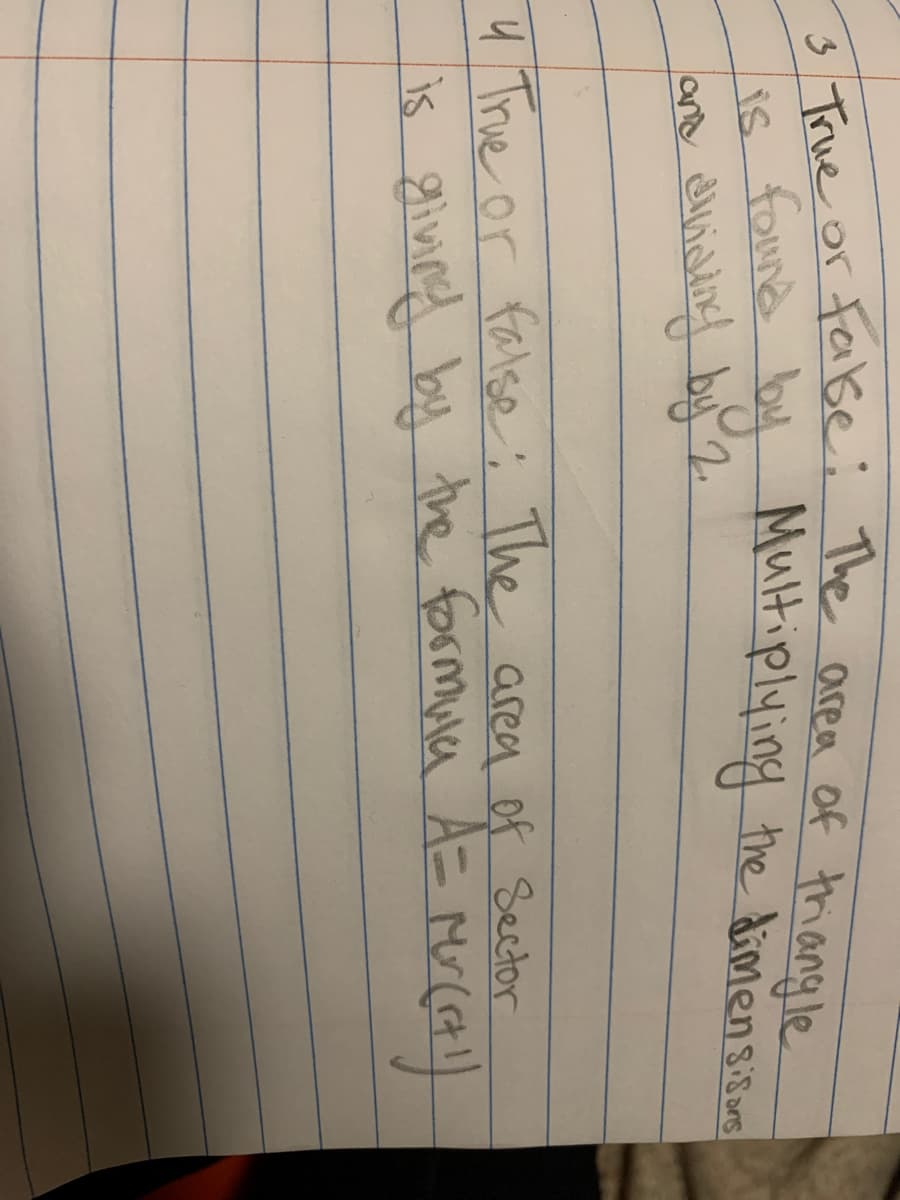 3 True or false: The area of triangle
is found by Multiplying the dimensisons
and dividing by 2.
4 True or false: The area of Sector
is giving by the formula A= πr(r+l)